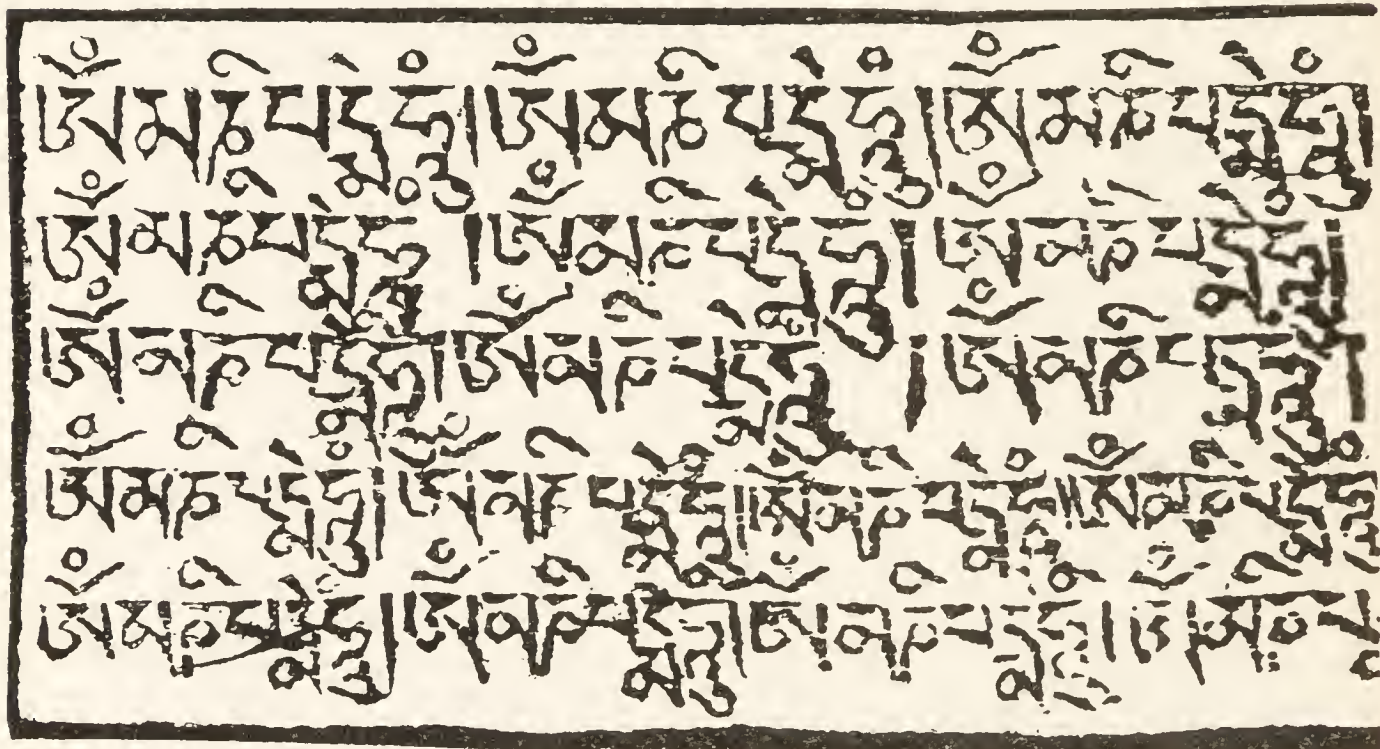 ཨོཾམཎིཔདྨེཧཱུཾ།ཨོཾམཎིཔདྨེཧཱུཾ།ཨོཾམཎིཔདྨེཧཱུཾ།
ཨོཾམཎིཔདྨེཧཱུཾ།ཨོཾམཎིཔདྨེཧཱུཾ།ཨོཾམཎིཔདྨེཧཱུཾ།
ཨོཾམཎིཔདྨེཧཱུཾ།ཨོཾམཎིཔདྨེཧཱུཾ།ཨོཾམཎིཔདྨེཧཱུཾ།
ཨོཾམཎིཔདྨེཧཱུཾ།ཨོཾམཎིཔདྨེཧཱུཾ།ཨོཾམཎིཔདྨེཧཱུཾ།ཨོཾམཎིཔདྨེཧཱུཾ
ཨོཾམཎིཔདྨེཧཱུཾ།ཨོཾམཎིཔདྨེཧཱུཾ།ཨོཾམཎིཔདྨེཧཱུཾ།ཨོཾམཎིཔ